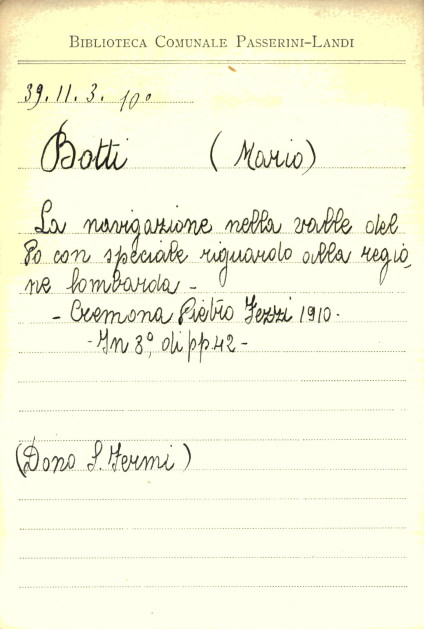 BIBLIOTECA COMUNALE PASSERINI-LANDI
39.11.3. 10°
Botti (Mario)
La navigazione nella valle del
Po con speciale riguardo alla regio-
ne lombarda -
- Cremona Pietro Fezzi 1910 -
- In 8°, di pp. 42 -
(Dono S. Fermi)